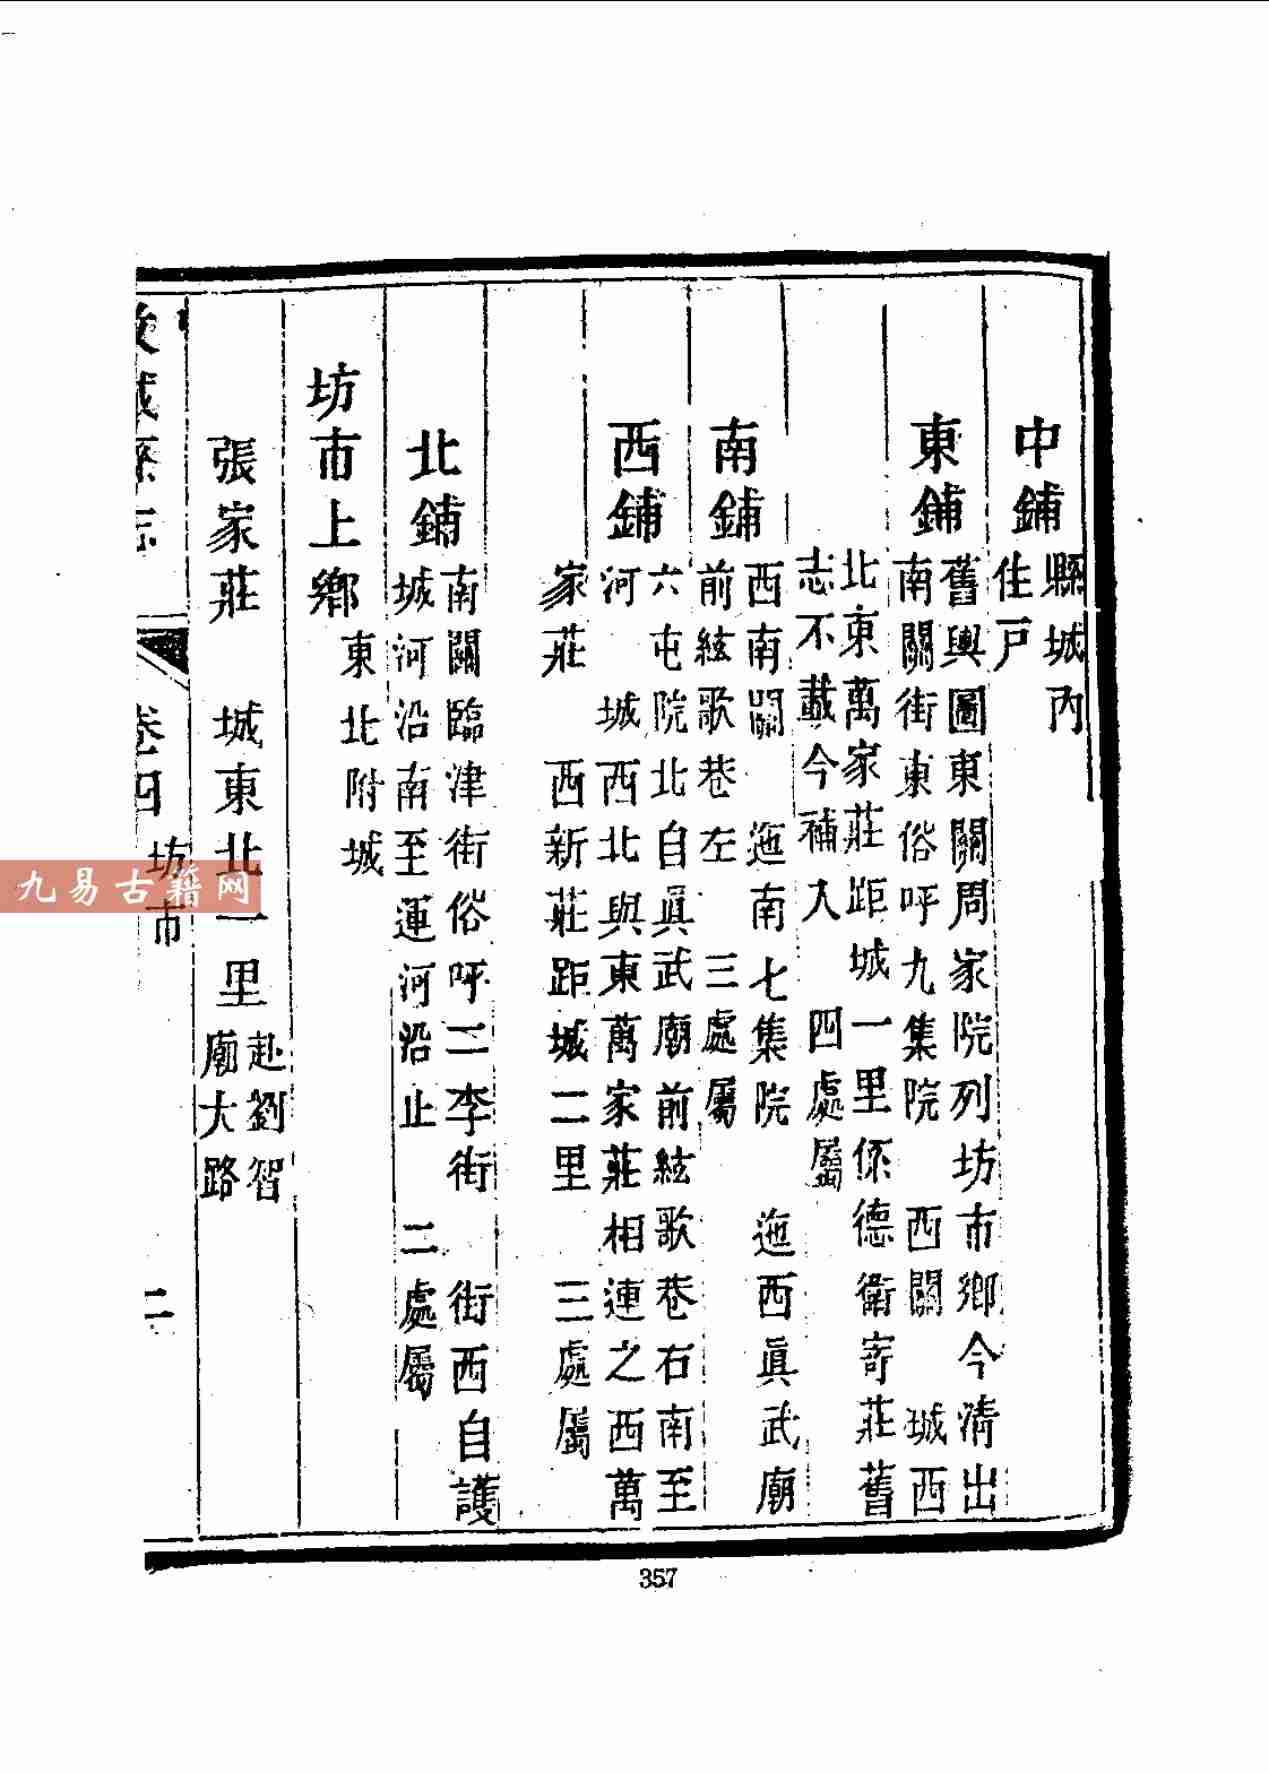 中鋪
縣城內
住戶
東鋪
舊輿圖東關周家院列坊市鄉今清出
南關街東俗呼九集院 西關 城西
北東萬家莊距城一里係德衛寄莊舊
志不載今補入 四處屬
南鋪
西南關 迤南七集院 迤西眞武廟
前絃歌巷左 三處屬
西鋪
六屯院北自眞武廟前絃歌巷右南至
河 城西北與東萬家莊相連之西萬
家莊 西新莊距城二里 三處屬
北鋪
南關臨津街俗呼二李街 街西自護
城河沿南至運河沿止 二處屬
坊市上鄉
東北附城
張家莊 城東北一里
赴劉智
廟大路
卷四 坊市
二
九易古籍网
357